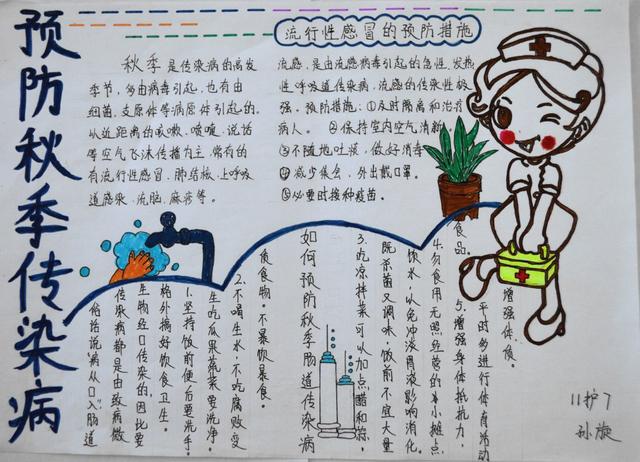 预防秋季传染病
流行性感冒的预防措施
秋季是传染病的高发
季节，多由病毒引起，也有由
细菌，支原体等病原体引起的。
以近距离的咳嗽、喷嚏，说话
等空气飞沫传播为主，常有的
有流行性感冒，肺结核，上呼吸
道感染、流脑，麻疹等。
流感，是由流感病毒引起的急性，发热
性呼吸道传染病，流感的传染性极
强。预防措施：①及时隔离和治疗
病人。②保持室内空气清新
③不随地吐痰，做好消毒
④减少集会，外出戴口罩。
⑤必要时接种疫苗。
如何预防秋季肠道传染病
俗话说"病从口入"肠道
传染病都是由致病微
生物经口传染的，因此要
格外搞好饮食卫生。
1.坚持饭前便后要洗手。
生吃瓜果蔬菜要洗净。
2.不喝生水，不吃腐败变
质食物，不暴饮暴食。
3.吃凉拌菜可以加点醋和蒜，
既杀菌又调味，饭前不宜大量
饮水，以免冲淡胃液影响消化。
4.勿食用无照经营的小摊点
食品。
5.增强身体抵抗力，
平时多进行体育活动
增强体质。
11护7
孙旋